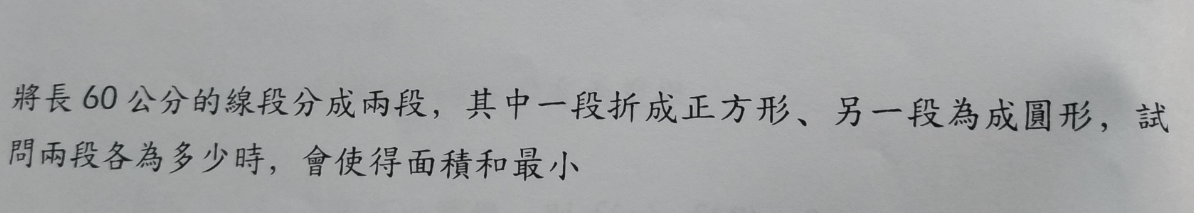 將長 60 公分的線段分成兩段，其中一段折成正方形、另一段為成圓形，試
問兩段各為多少時，會使得面積和最小